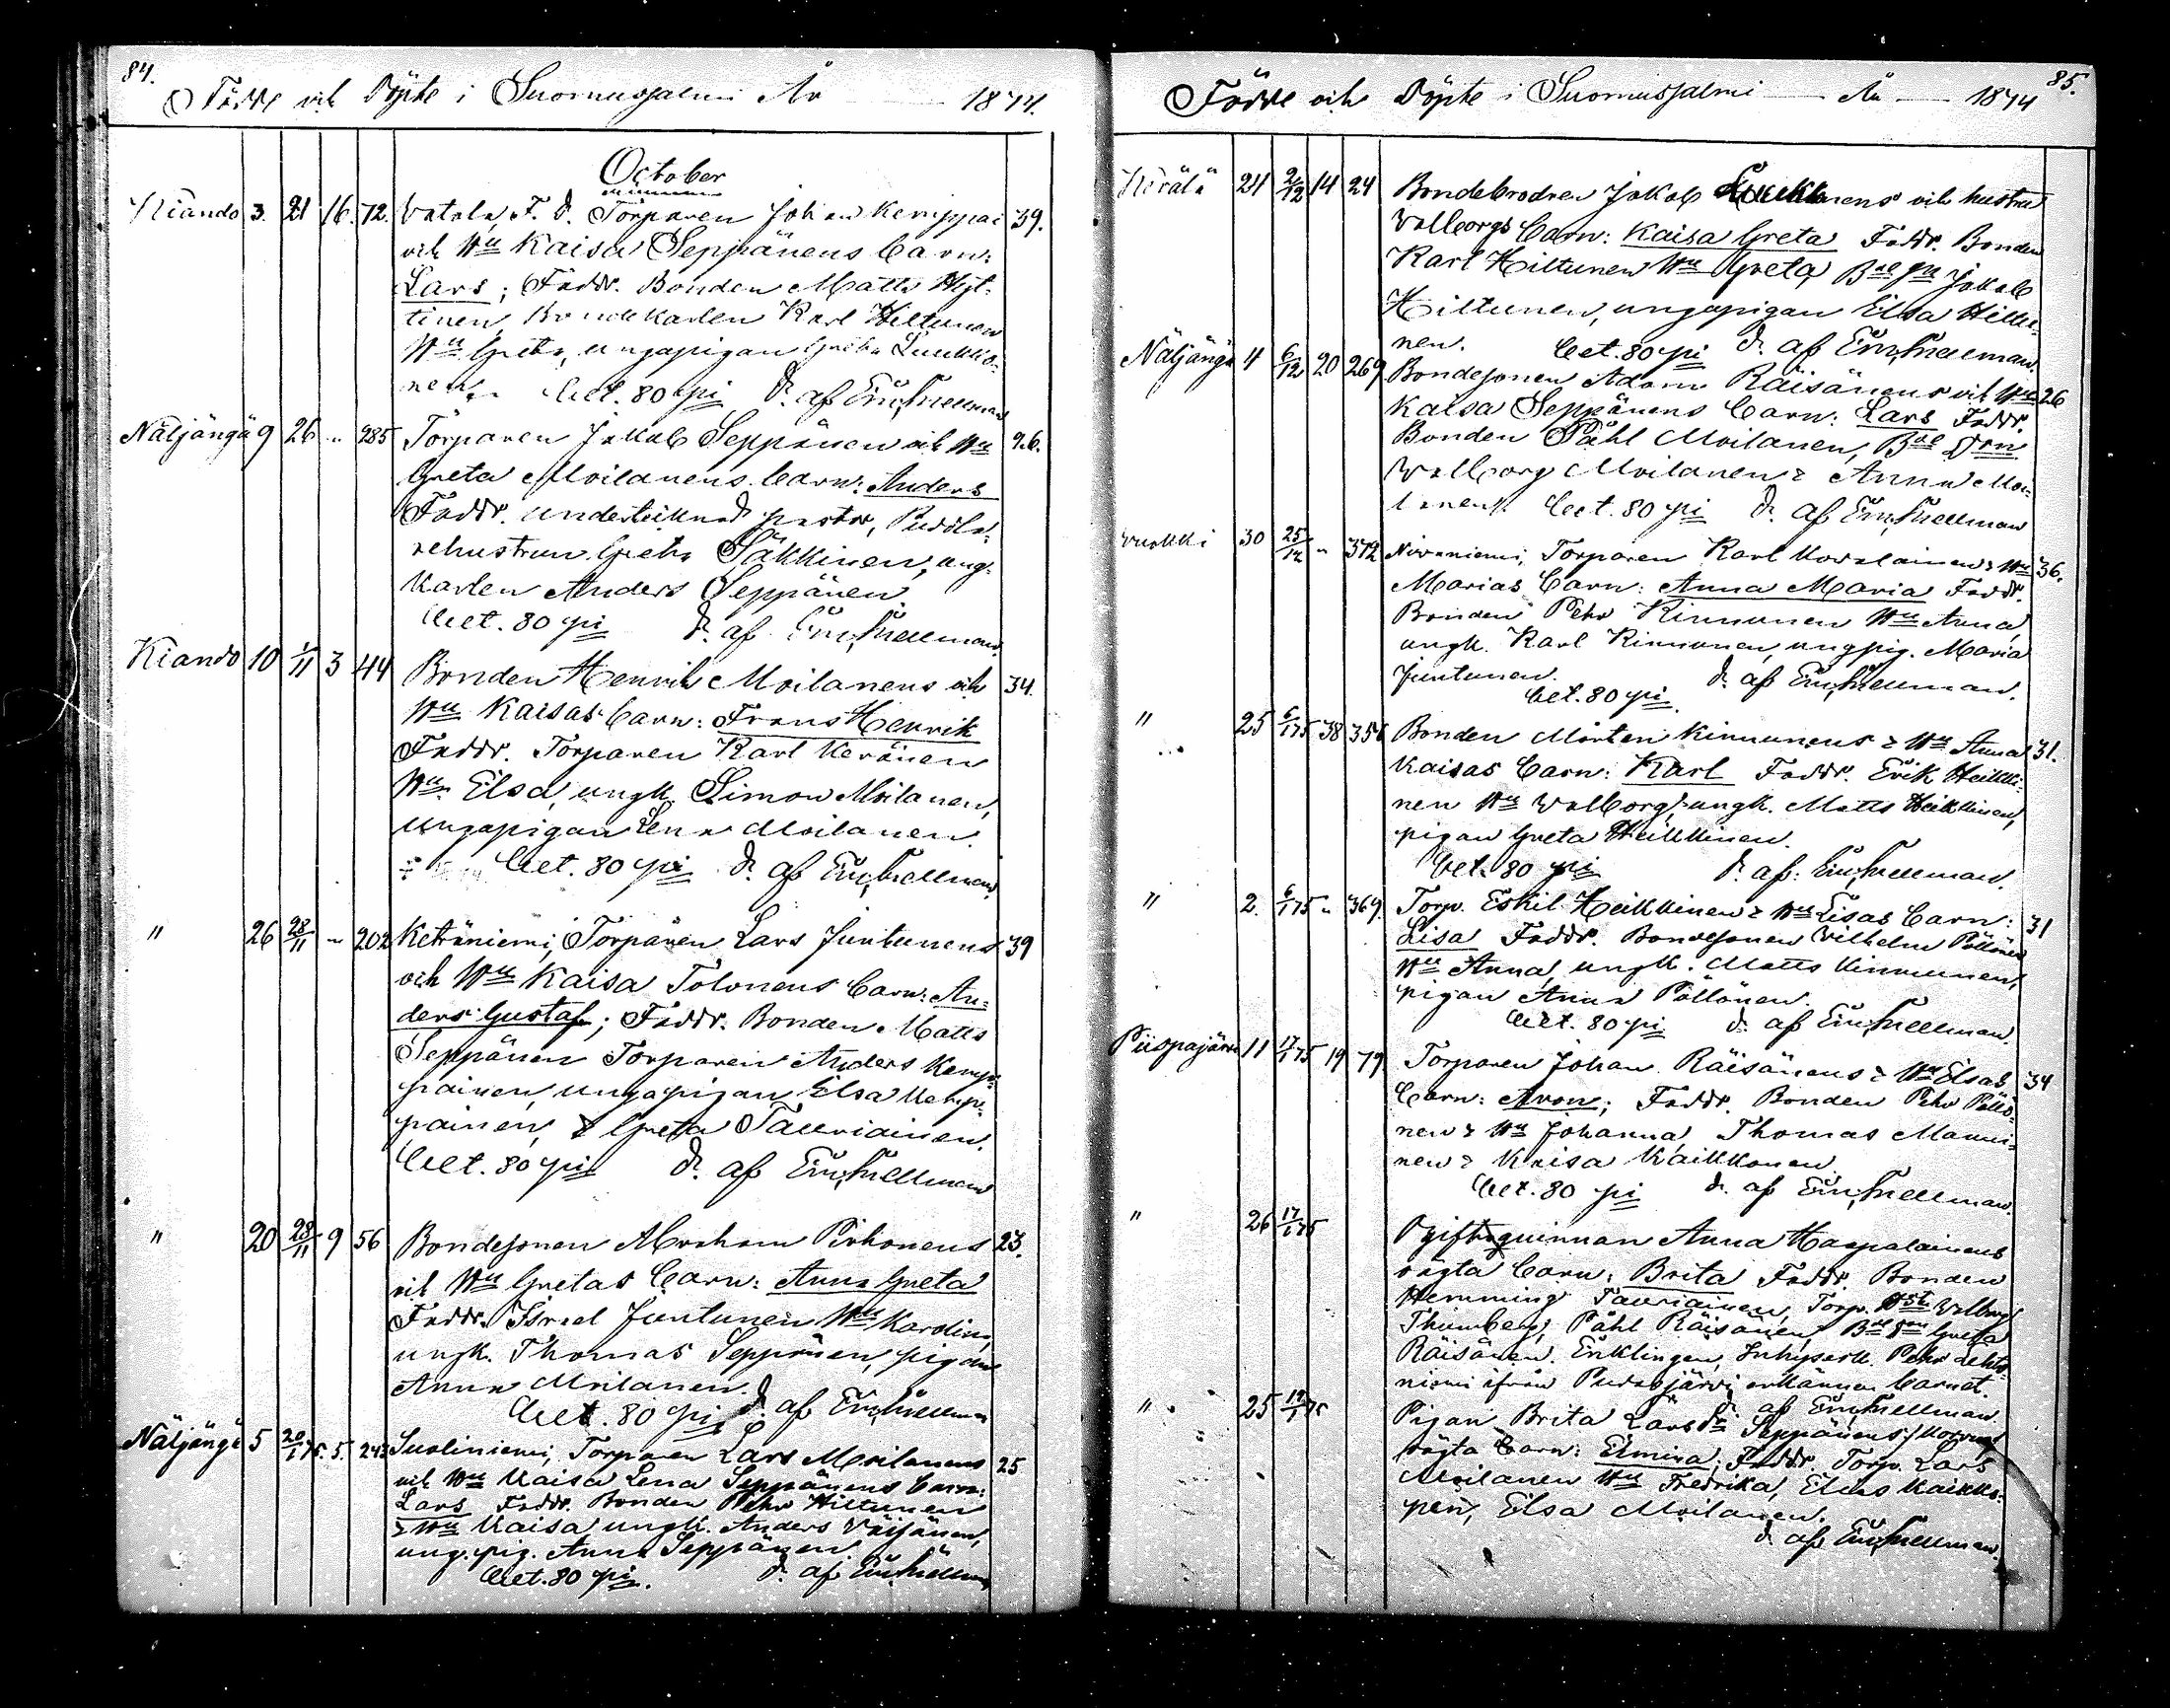 84.
Födde och Döpte i Suomussalmi År 1874.
October
Kiando 3. 21 16. 72. Vatala, T. d. Torparen Johan Kemppai 39.
och Hu Kaisa Seppänens barn:
Lars; Faddr. Bonden Matts Hyt-
tinen, Bondekarlen Karl Hiltunen
Hu Greta, ungapigan Greta Luukko-
nen. Cert. 80 pi d. af Em. Snellman
Näljängä 9 26 " 285 Torparen Jakob Seppänen och Hu 26.
Greta Moilanens barn: Anders
Faddr. undertecknad pastor,
rehustrun Greta Säkkinen, ung-
karlen Anders Seppänen.
Cert. 80 pi d. af Em. Snellman.
Kiando 10 1/11 3 44 Bonden Henrik Moilanens och 34.
Hu Kaisas barn: Frans Henrik
Faddr. Torparen Karl Keränen
Hu Elsa, ungk. Simon Moilanen,
ungapigan Lena Moilanen.
Cert. 80 pi d. af Em. Snellman.
" 26 28/11 " 202 Keträniemi, Torparen Lars Juntunens 39
och Hu Kaisa Tolonens barn: An-
ders Gustaf; Faddr. Bonden Matts
Seppänen Torparen Anders Kemp-
painen, ungapigan Elsa Kemp-
painen, & Greta Tauriainen.
Cert. 80 pi d. af Em. Snellman
" 20 28/11 9 56 Bondesonen Abraham Pirhonens 23.
och Hu Gretas barn: Anna Greta
Faddr. Israel Juntunen Hu Karolina,
ungk. Thomas Seppänen, pigan
Anna Moilanen.
Cert. 80 pi d. af Em. Snellman
Näljängä 5 20/1 75. 5. 243 Suoliniemi, Torparen Lars Moilanens 25
och Hu Kaisa Lena Seppänens barn:
Lars Faddr. Bonden Pehr Hiltunen
& Hu Kaisa, ungk. Anders Väisänen,
ung.pig. Anna Seppänen.
Cert. 80 pi. d. af Em. Snellman
85.
Födde och Döpte i Suomussalmi År 1874
Kerälä 21 2/12 14 24 Bondebrodren Jakob och hustru
Walborgs barn: Kaisa Greta Faddr. Bonden
Karl Hiltunen Hu Greta, Jakob
Hiltunen, ungapigan Elsa Hiltu-
nen. Cert. 80 pi d. af Em. Snellman.
Näljängä 4 6/12 20 269 Bondesonen Adam Räisänens och Hu 26
Kaisa Seppänens barn: Lars Faddr.
Bonden Påhl Moilanen, Bde Drn
Walborg Moilanen & Anna Moi-
lanen. Cert. 80 pi d. af Em. Snellman
Vuokki 30 25/12 " 372 Nivaniemi, Torparen Karl Kovalainen & Hu 36.
Marias barn: Anna Maria Faddr.
Bonden Pehr Kinnunen Hu Anna,
ungk. Karl Kinnunen, ungpig. Maria
Juntunen. d. af Em. Snellman.
Cert. 80 pi.
" 25 6/1 75 38 356 Bonden Mårten Kinnunens & Hu Anna 31.
Kaisas barn: Karl Faddr. Erik Heikki-
nen Hu Walborg, ungk. Matts Heikkinen,
pigan Greta Heikkinen.
Cert. 80 pi d. af: Em. Snellman.
" 2. 6/1 75 " 369. Torp. Eskil Heikkinen & Hu Lisas barn: 31
Lisa Faddr. Bondesonen Wilhelm Pöllönen
Hu Anna, ungk. Matts Kinnunen,
pigan Anna Pöllönen.
Cert. 80 pi d. af Em. Snellman.
Piispajärvi 11 17/1 75 19 79 Torparen Johan Räisänens & Hu Elsas 34
barn: Aron; Faddr. Bonden Pehr Pöllö-
nen & Hu Johanna, Thomas Manni-
nen & Kaisa Kaikkonen.
Cert. 80 pi d. af Em. Snellman.
" 26 17/1 75 Ogiftaqvinnan Anna Haapalainens
oägta barn: Brita Faddr. Bonden
Hemming Tauriainen, Torp. Hst. Walborg
Thunberg, Påhl Räisänen, Bde Drn Greta
Räisänen. Enklingen, Inhyserk. Pehr Lehto-
niemi ifrån Pudasjärvi erkänner barnet.
d. af Em. Snellman.
" 25 17/1 75 Pigan Brita Larsdr Seppänens
oägta barn: Elmina; Faddr. Torp. Lars
Moilanen Hu Fredrika, Elias Kaikko-
nen, Elsa Moilanen.
d. af Em. Snellman.